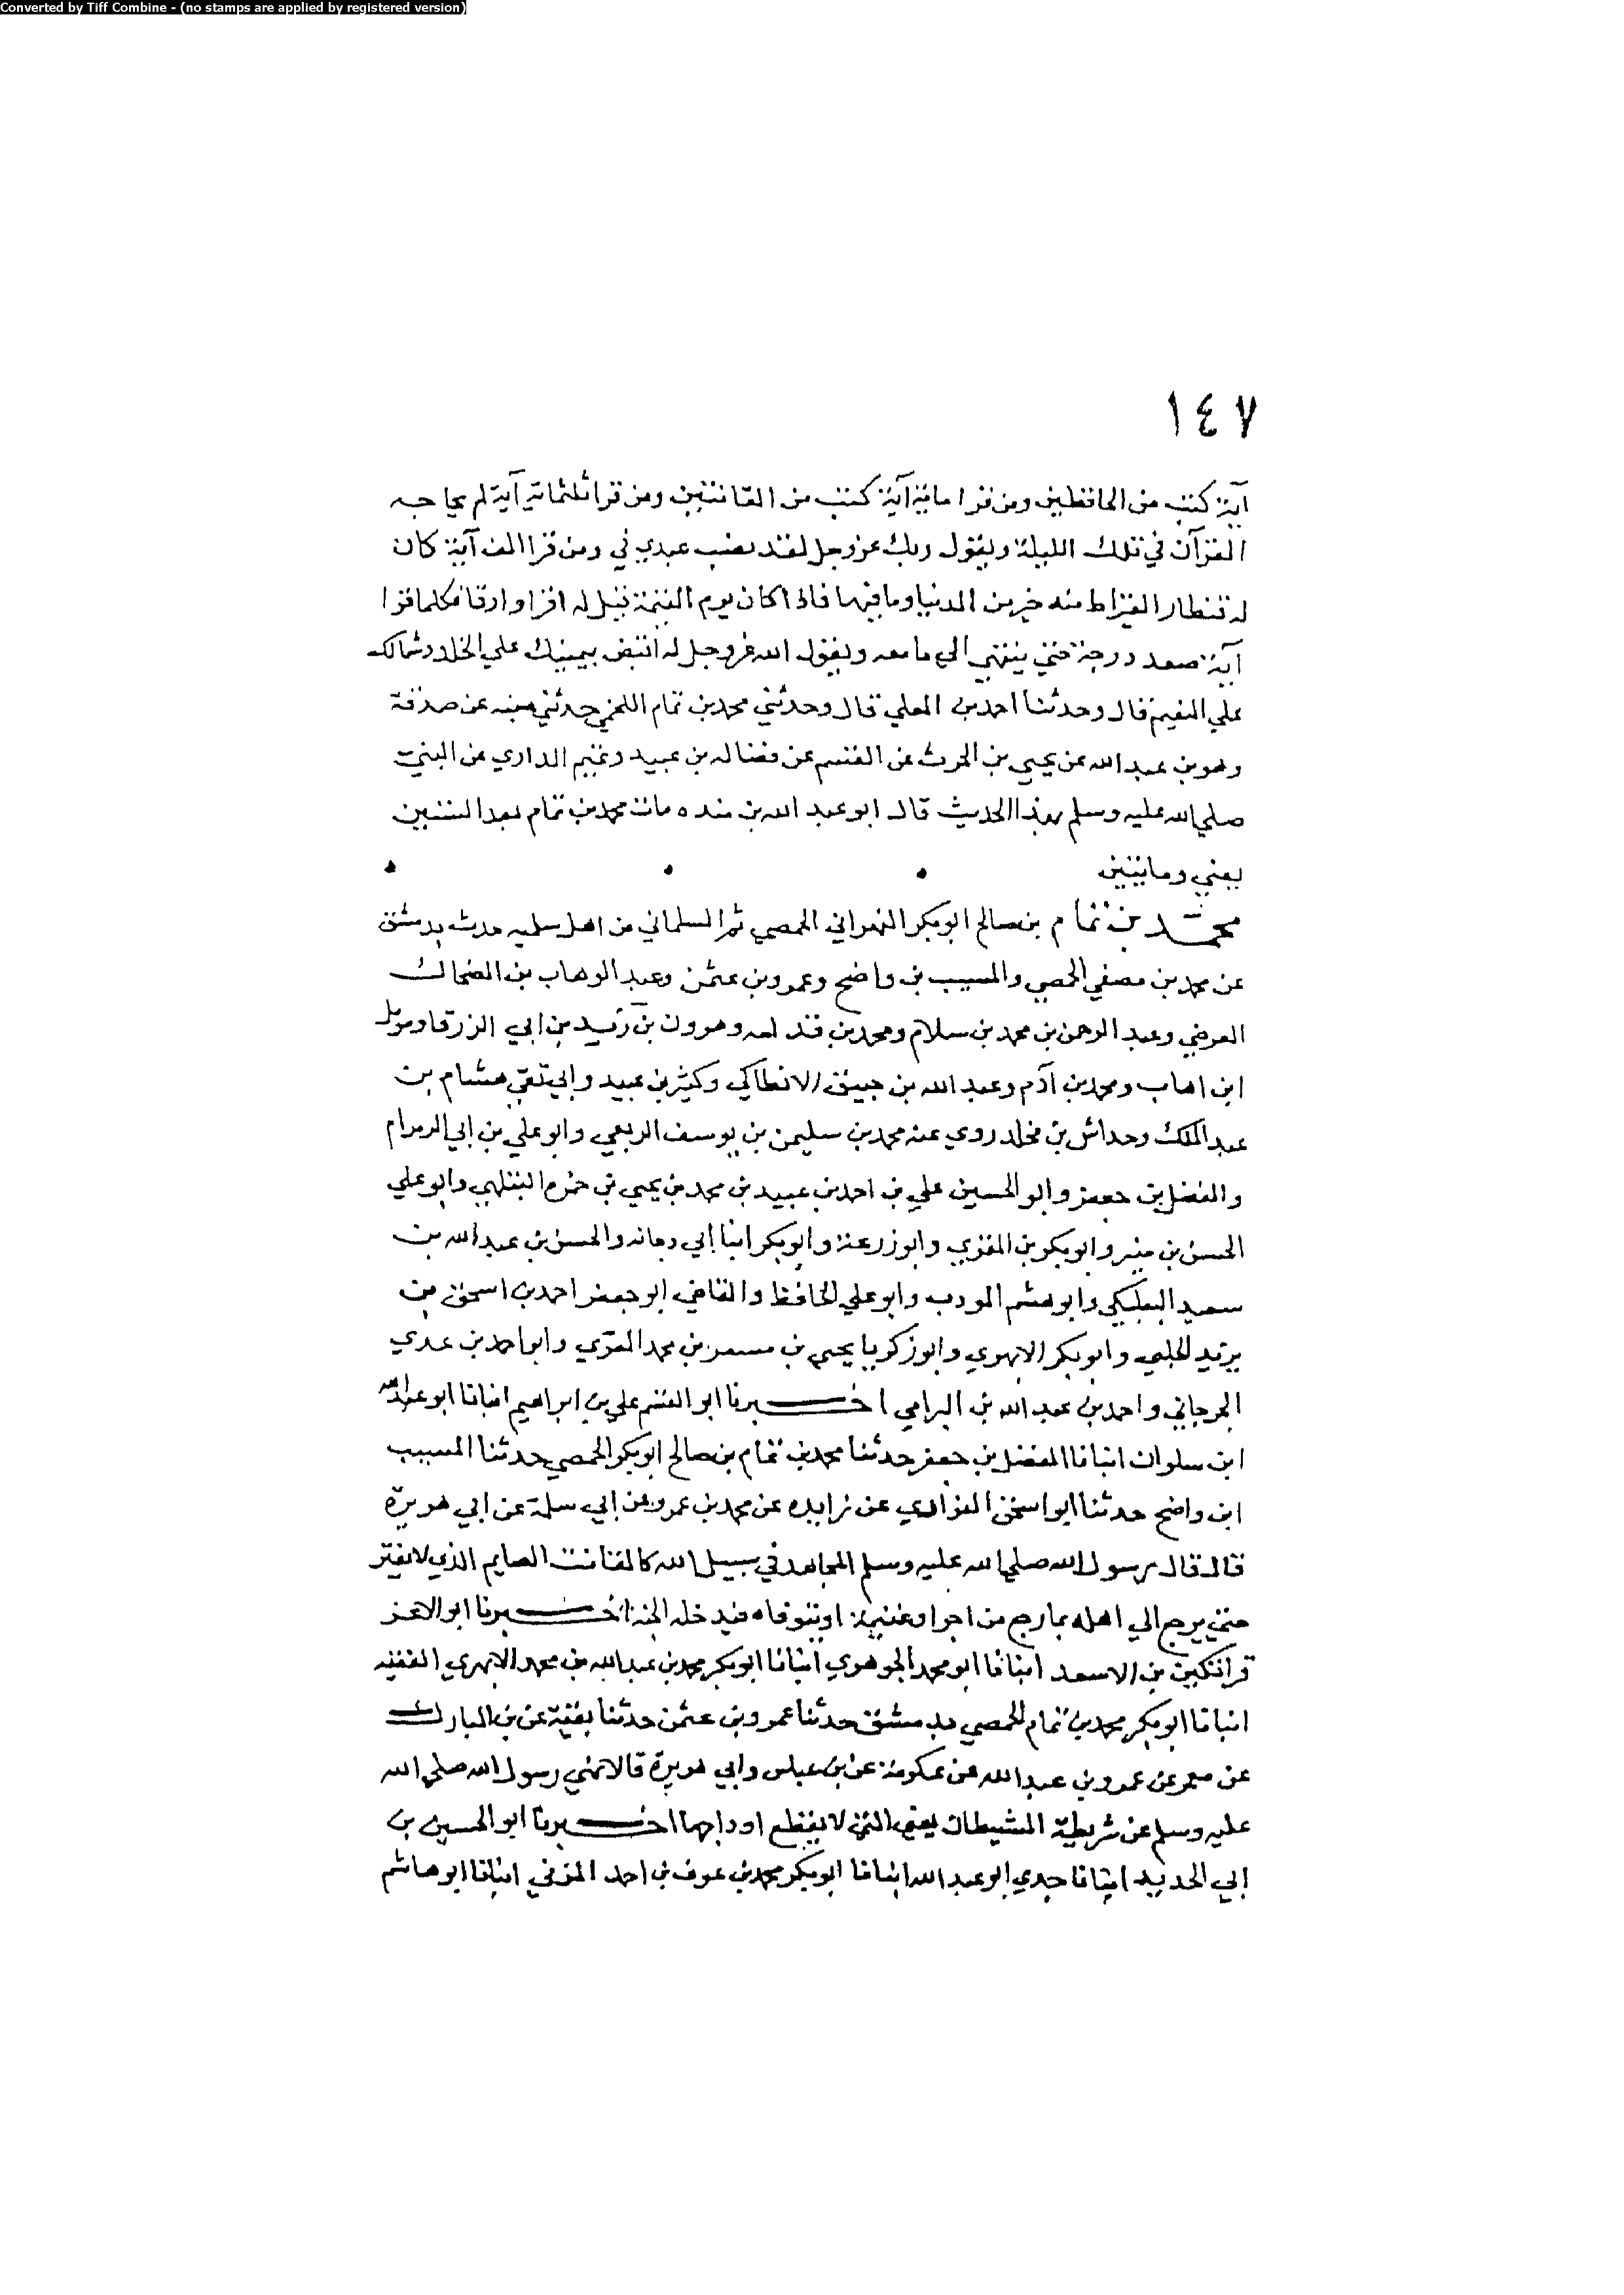 Converted by Tiff Combine - (no stamps are applied by registered version)
١٤٧
آية كتب من الحافظين ومن قرا ماية آية كتب من القانتين ومن قرا ثلثماية آية لم يحاجه
القرآن في تلك الليلة ويقول ربك عز وجل لقد نصب عبدي في ومن قرا الف آية كان
له قنطار القيراط منه خير من الدنيا وما فيها فاذا كان يوم القيمة قيل له اقرا وارقا فكلما قرا
آية صعد درجة حتى ينتهي الي ما معه ويقول الله عز وجل له اقبض بيمينك علي الخلد وشمالك
علي النعيم قال وحدثنا احمد بن المعلي قال وحدثني محمد بن تمام اللخمي حدثني منبه عن صدقة
وهو بن عبد الله عن يحيي بن الحرث عن القسم عن فضاله بن عبيد وتميم الداري عن النبي
صلي الله عليه وسلم بهذا الحديث قال ابو عبد الله بن منده مات محمد بن تمام بعد الستين
يعني ومايتين
محمد بن تمام بن صالح ابو بكر البهراني الحمصي ثم السلماني من اهل سلميه حدث بدمشق
عن محمد بن مصفي الحمصي والمسيب بن واضح وعمرو بن عثمن وعبد الوهاب بن الضحاك
العرضي وعبد الرحمن بن محمد بن سلام ومحمد بن قدامه وهرون بن زيد بن ابي الزرقا ومومل
ابن اهاب ومحمد بن آدم وعبد الله بن خبيق الانطاكي وكثير بن عبيد وابي تقي هشام بن
عبد الملك وحداش بن مخلد روي عنه محمد بن سليمن بن يوسف الربعي وابو علي بن ابي الرمرام
والفضل بن جعفر وابو الحسين علي بن احمد بن عبيد بن محمد بن يحيي بن حمزه البتلهي وابو علي
الحسن بن منير وابو بكر بن المقري وابو زرعة وابو بكر ابنا ابي دجانه والحسن بن عبد الله بن
سعيد البعلبكي وابو هشم المودب وابو علي الحافظ والقاضي ابو جعفر احمد بن اسحق بن
يزيد الحلبي وابو بكر الابهري وابو زكريا يحيي بن مسعر بن محمد المعري وابو احمد بن عدي
الجرجاني واحمد بن عبد الله بن البرامي اخبرنا ابو القسم علي بن ابراهيم انبانا ابو عبد الله
ابن سلوان انبانا الفضل بن جعفر حدثنا محمد بن تمام بن صالح ابو بكر الحمصي حدثنا المسيب
ابن واضح حدثنا ابو اسحق الفزاري عن زايده عن محمد بن عمرو عن ابي سلمة عن ابي هريرة
قال قال رسول الله صلي الله عليه وسلم المجاهد في سبيل الله كالقانت الصايم الذي لا يفتر
حتى يرجع الي اهله بما رجع من اجر او غنيمة او يتوفاه فيدخله الجنة اخبرنا ابو الاعز
قراتكين بن الاسعد انبانا ابو محمد الجوهري انبانا ابو بكر محمد بن عبد الله بن محمد الابهري الفقيه
انبانا ابو بكر محمد بن تمام الحمصي بدمشق حدثنا عمرو بن عثمن حدثنا بقية عن بن المبارك
عن معمر عن عمرو بن عبد الله عن عكرمة عن بن عباس وابي هريرة قالا نهي رسول الله صلي الله
عليه وسلم عن شريطة الشيطان يعني التي لا يقطع اوداجها اخبرنا ابو الحسين بن
ابي الحديد انبانا جدي ابو عبد الله انبانا ابو بكر محمد بن عوف بن احمد المزني انبانا ابو هاشم